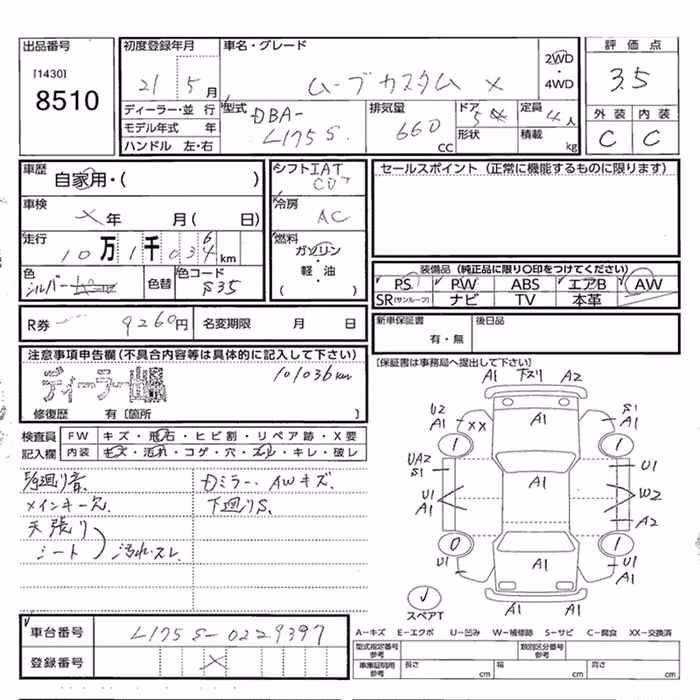 出品番号
[1430]
8510
初度登録年月
21 5月
車名・グレード
ムーブカスタム X
2WD
・
4WD
評価点
3.5
外装 内装
C C
ディーラー・並行
モデル年式 年
ハンドル 左・右
型式
DBA-
L175S
排気量
660
CC
ドア
5
形状
定員
4人
積載
kg
車歴
自家用・( )
車検
X年 月( 日)
走行
10万1千036km
色
シルバー
色替
色コード
S35
シフト IAT
冷房
AC
燃料
ガソリン
・
軽・油
( )
セールスポイント (正常に機能するものに限ります)
装備品 (純正品に限り○印をつけてください)
PS PW ABS エアB AW
SR(サンルーフ) ナビ TV 本革
R券 9260円 名変期限 月 日
新車保証書
有・無
後日品
注意事項申告欄(不具合内容等は具体的に記入して下さい)
101036km
ディーラー出品
修復歴 有〔箇所 〕
[保証書は事務局へ提出して下さい]
検査員
記入欄
FW キズ・飛石・ヒビ割・リペア跡・X要
内装 キズ・汚れ・コゲ・穴・スレ・キレ・破レ
足廻り音
メインキー欠
天張り
シート
汚れ.スレ
Dミラー、AWキズ
下廻りS
A1 下スリ A2
U2 A1 XX A1 S1 A1
1 1
UA2 S1 A1 U1
U1 A1 W2
A2
0 1
U1 A1 U1 A1
スペアT
車台番号 L175S-0229397
登録番号 X
A-キズ E-エクボ U-凹み W-補修跡 S-サビ C-腐食 XX-交換済
型式指定番号
参考
類別区分番号
参考
車庫証明用
参考
長さ cm 幅 cm 高さ cm